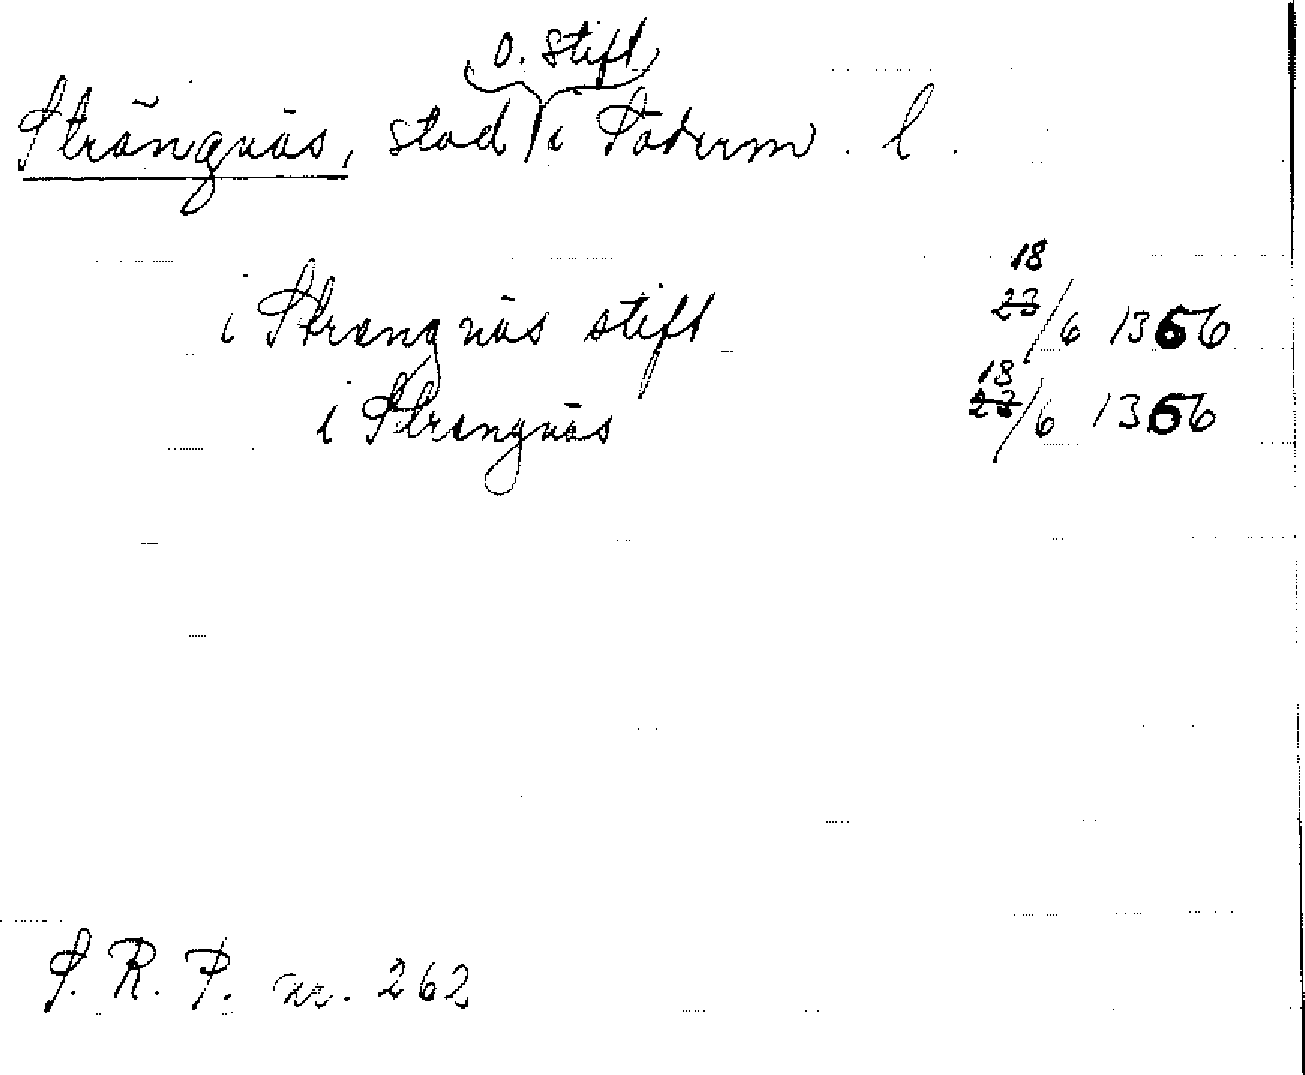 o. stift
Strängnäs, stad i Söderm. l.
18
i Strengnäs stift 23/6 1366
18
i Strengnäs 23/6 1366
S. R. P. nr. 262